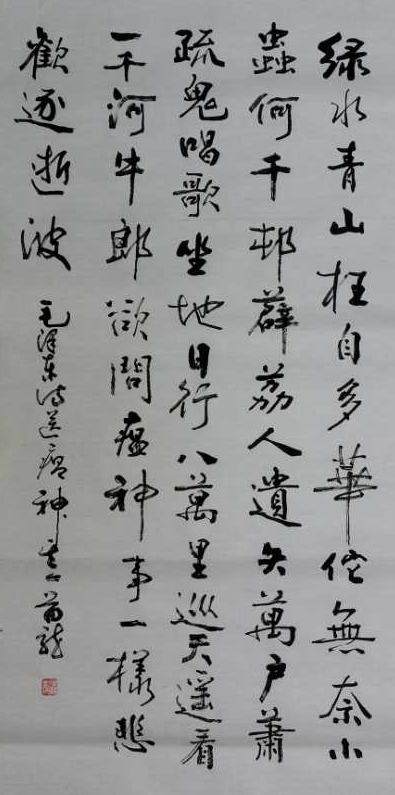 绿水青山枉自多華佗無奈小
蟲何千邨薜荔人遺矢萬户蕭
疏鬼唱歌坐地日行八萬里巡天遥看
一千河牛郎欲問瘟神事一樣悲
歡逐逝波
毛泽东诗送瘟神其一